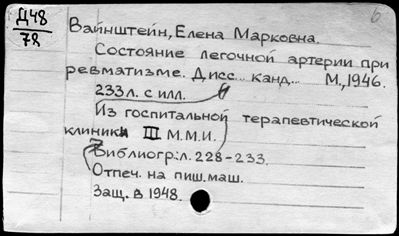 Д48
78
Вайнштейн, Елена Марковна.
Состояние легочной артерии при
ревматизме. Дисс... канд... М., 1946.
233 л. с илл.
Из госпитальной терапевтической
клиники III М.М.И.
Библиогр.: л. 228-233.
Отпеч. на пиш. маш.
Защ. в 1948.